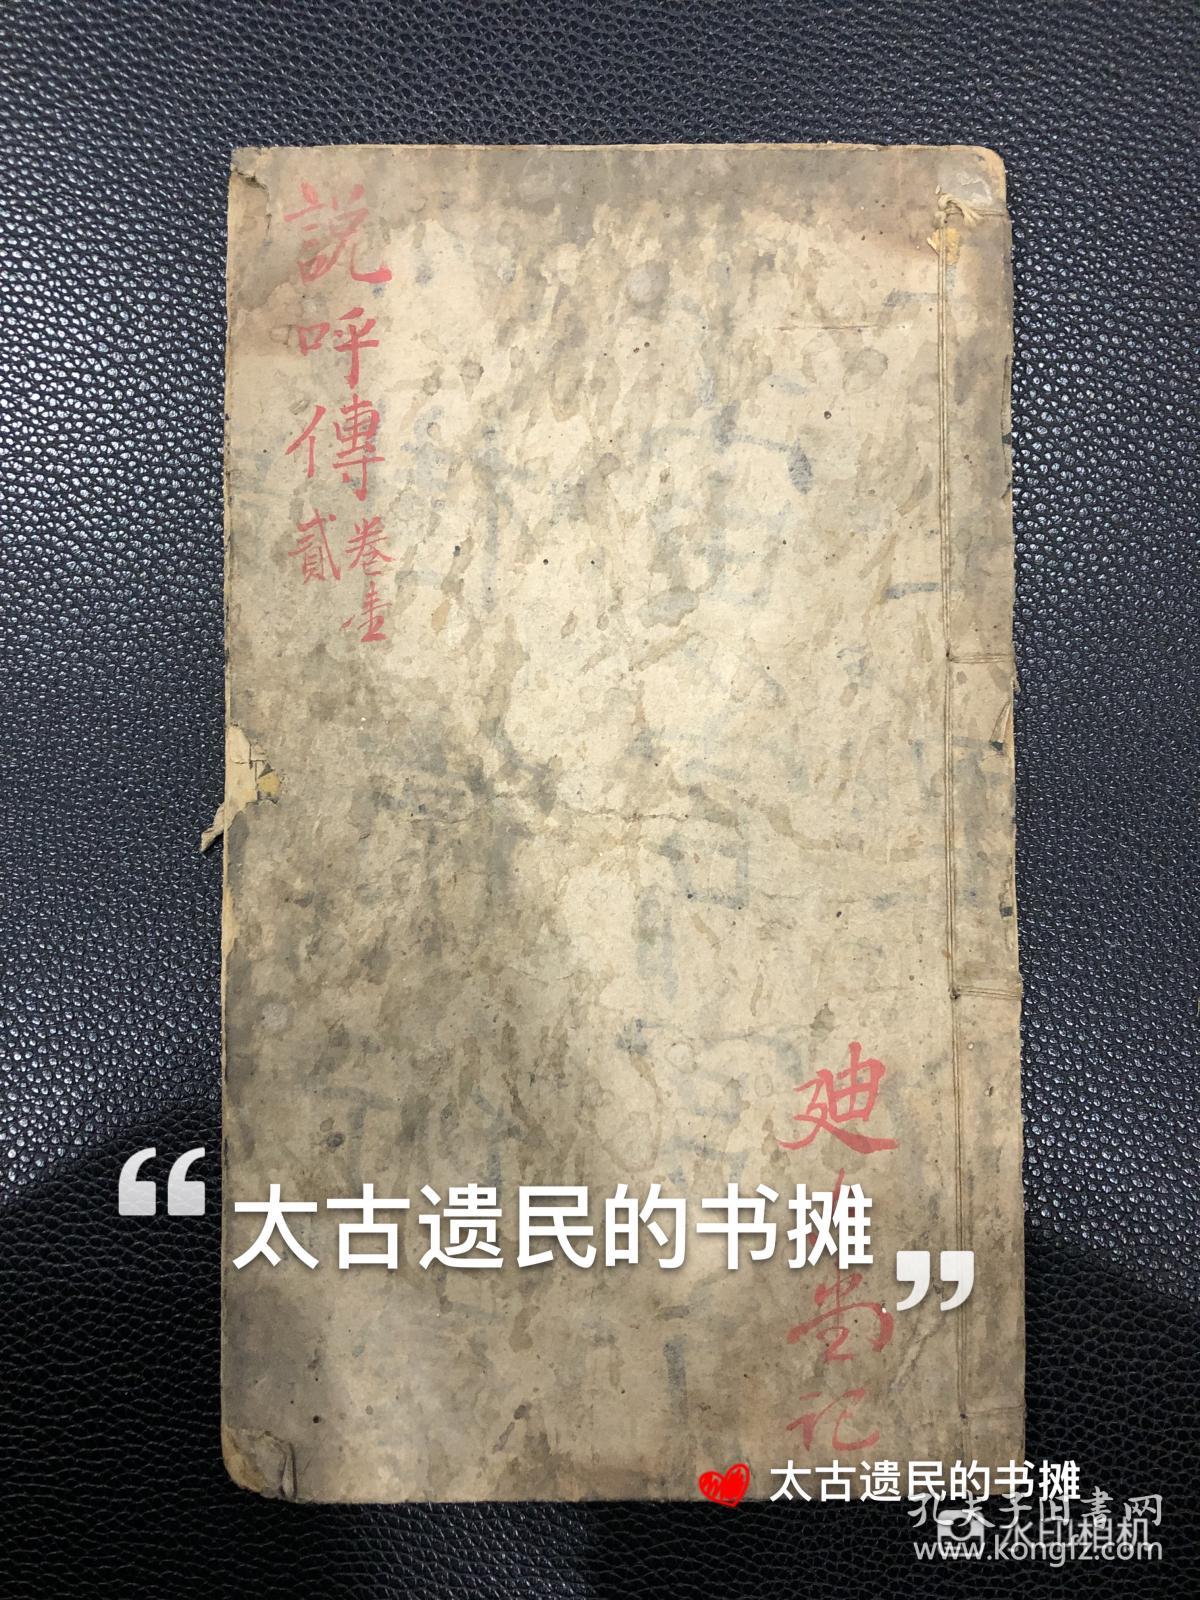 說呼傳
卷壹
貳
堂记
“太古遗民的书摊”
太古遗民的书摊
孔夫子旧書网
水印相机
www.kongfz.com